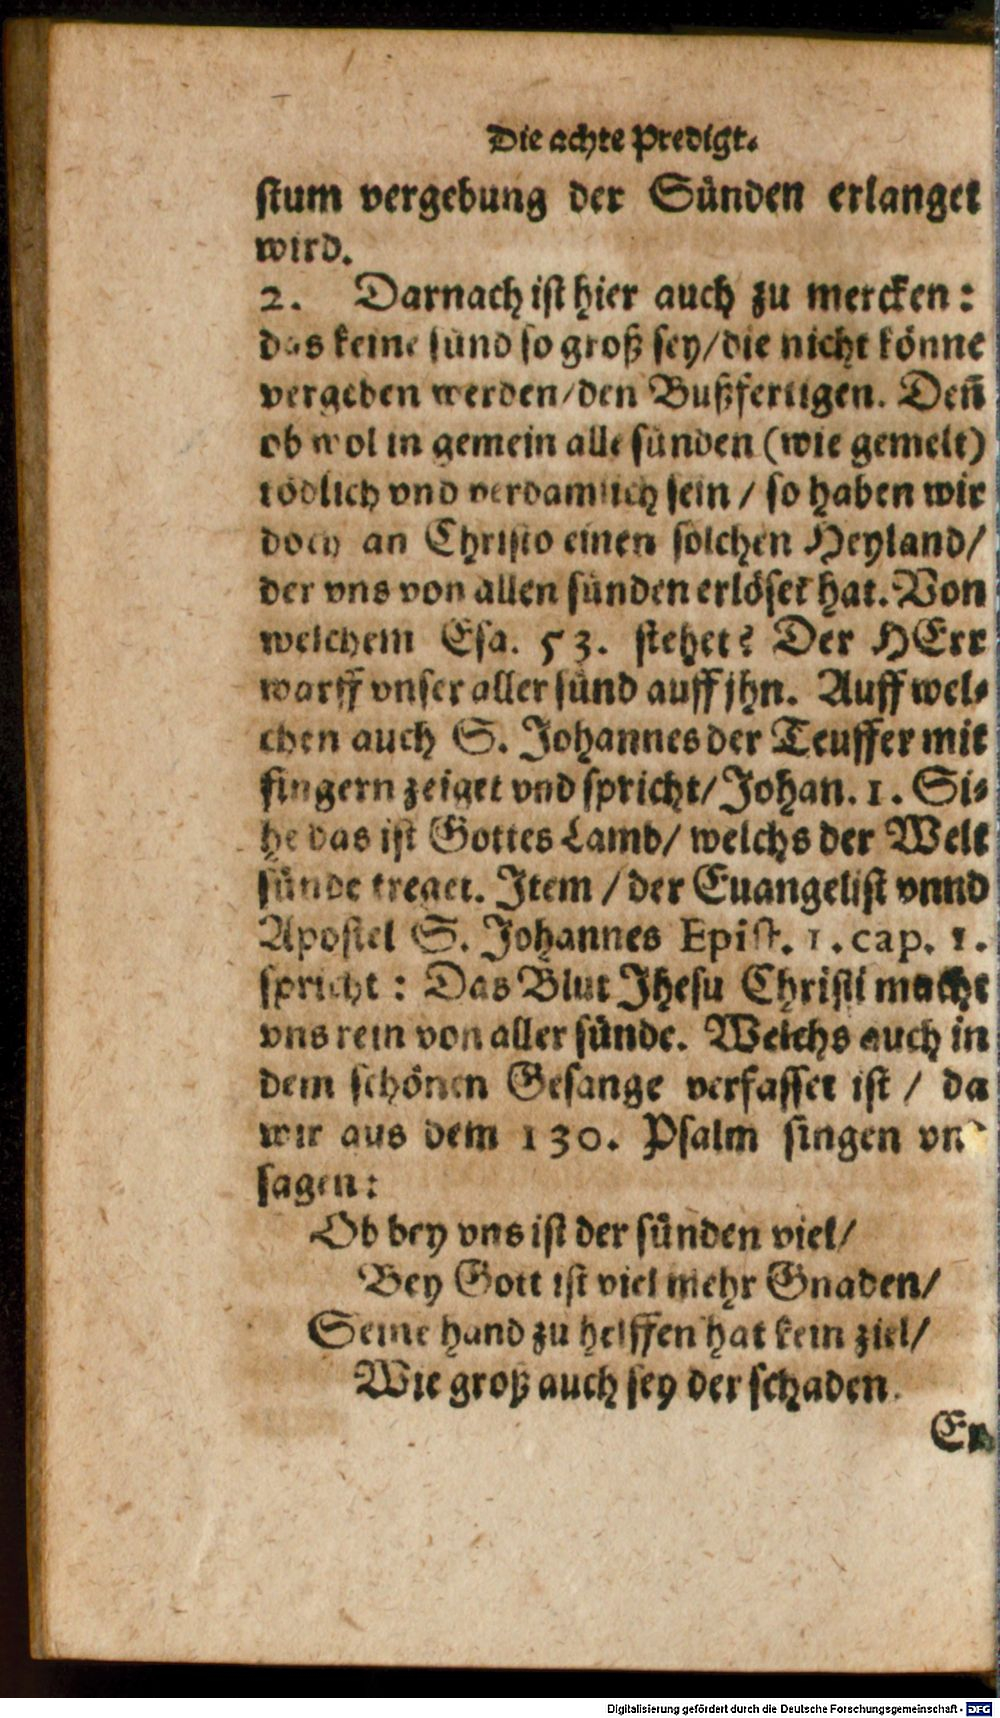 Die achte Predigt.
stum vergebung der Sünden erlanget
wird.
2. Darnach ist hier auch zu mercken:
das keine sünd so groß sey/die nicht könne
vergeben werden/den Bußfertigen. Deñ
ob wol in gemein alle sünden (wie gemelt)
tödlich vnd verdamlich sein / so haben wir
doch an Christo einen solchen Heyland/
der vns von allen sünden erlöset hat. Von
welchem Esa. 53. stehet: Der HErr
warff vnser aller sünd auff jhn. Auff wel-
chen auch S. Johannes der Teuffer mit
fingern zeiget vnd spricht/Johan. 1. Si-
he das ist Gottes Lamb/ welchs der Welt
sünde treget. Item / der Euangelist vnnd
Apostel S. Johannes Epist. 1. cap. 1.
spricht: Das Blut Jhesu Christi macht
vns rein von aller sünde. Welchs auch in
dem schönen Gesange verfasset ist / da
wir aus dem 130. Psalm singen vnd
sagen:
Ob bey vns ist der sünden viel/
Bey Gott ist viel mehr Gnaden/
Seine hand zu helffen hat kein ziel/
Wie groß auch sey der schaden.
Er
Digitalisierung gefördert durch die Deutsche Forschungsgemeinschaft - DFG